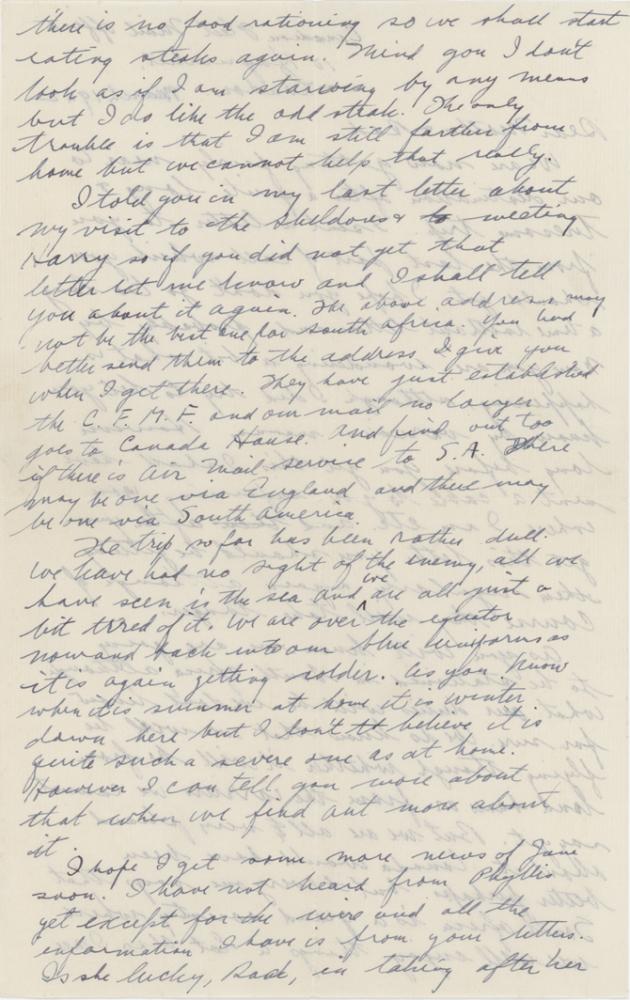 there is no food rationing so we shall start
eating steaks again. Mind you I don't
look as if I am starving by any means
but I do like the odd steak. The only
trouble is that I am still farther from
home but we cannot help that really.
I told you in my last letter about
my visit to the Sheldons & to meeting
Harry so if you did not get that
letter let me know and I shall tell
you about it again. The above address may
not be the best one for South Africa. You had
better send them to the address I give you
when I get there. They have just established
the C. F. M. F. and our mail no longer
goes to Canada House. And find out too
if there is Air Mail service to S.A. There
may be one via England and there may
be one via South America.
The trip so far has been rather dull.
We have had no sight of the enemy, all we
have seen is the sea and we are all just a
bit tired of it. We are over the equator
now and back into our blue uniforms as
it is again getting colder. As you know
when it is summer at home it is winter
down here but I don't believe it is
quite such a severe one as at home.
However I can tell you more about
that when we find out more about
it.
I hope I get some more news of Jane
soon. I have not heard from Phyllis
yet except for the wire and all the
information I have is from your letters.
Is she lucky, Dad, in taking after her